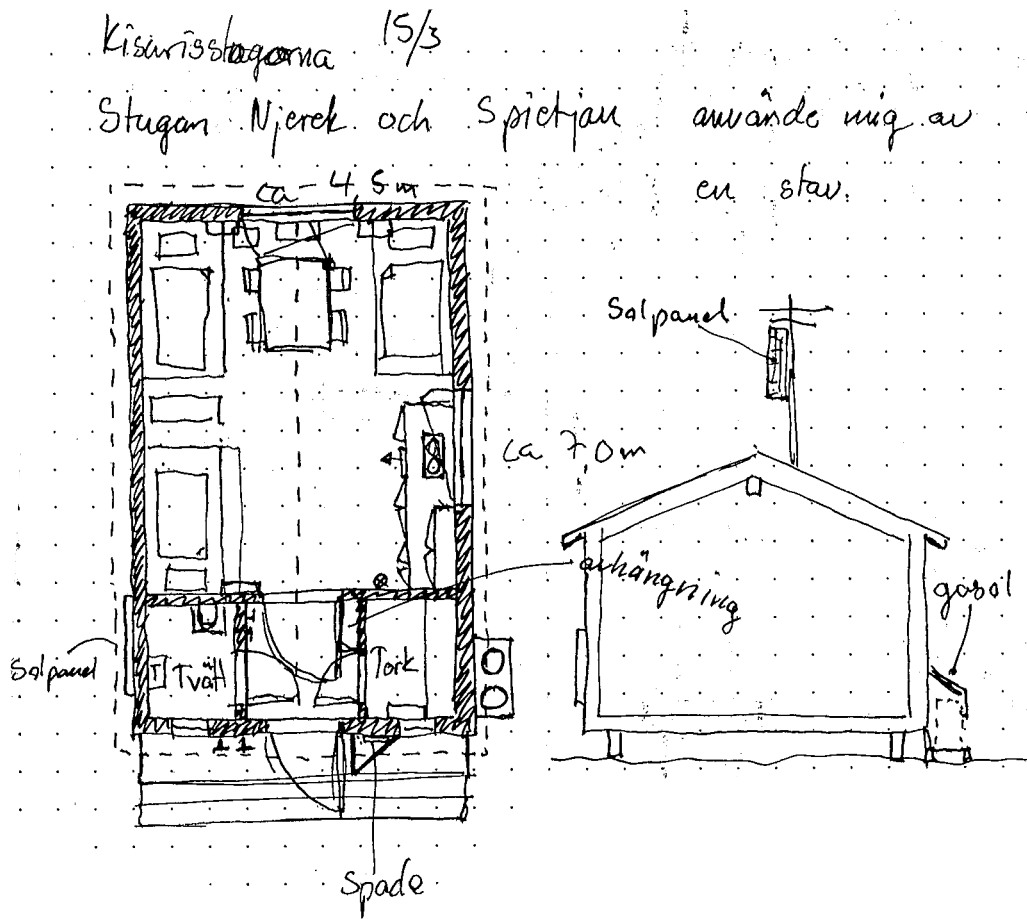 Kisurisstugorna 15/3
Stugan Njerek och Spietjau använde mig av
en stav.
ca 4,5m
Solpanel
ca 7,0m
avhängning
gasol
Solpanel
T Tvätt
Tork
Spade